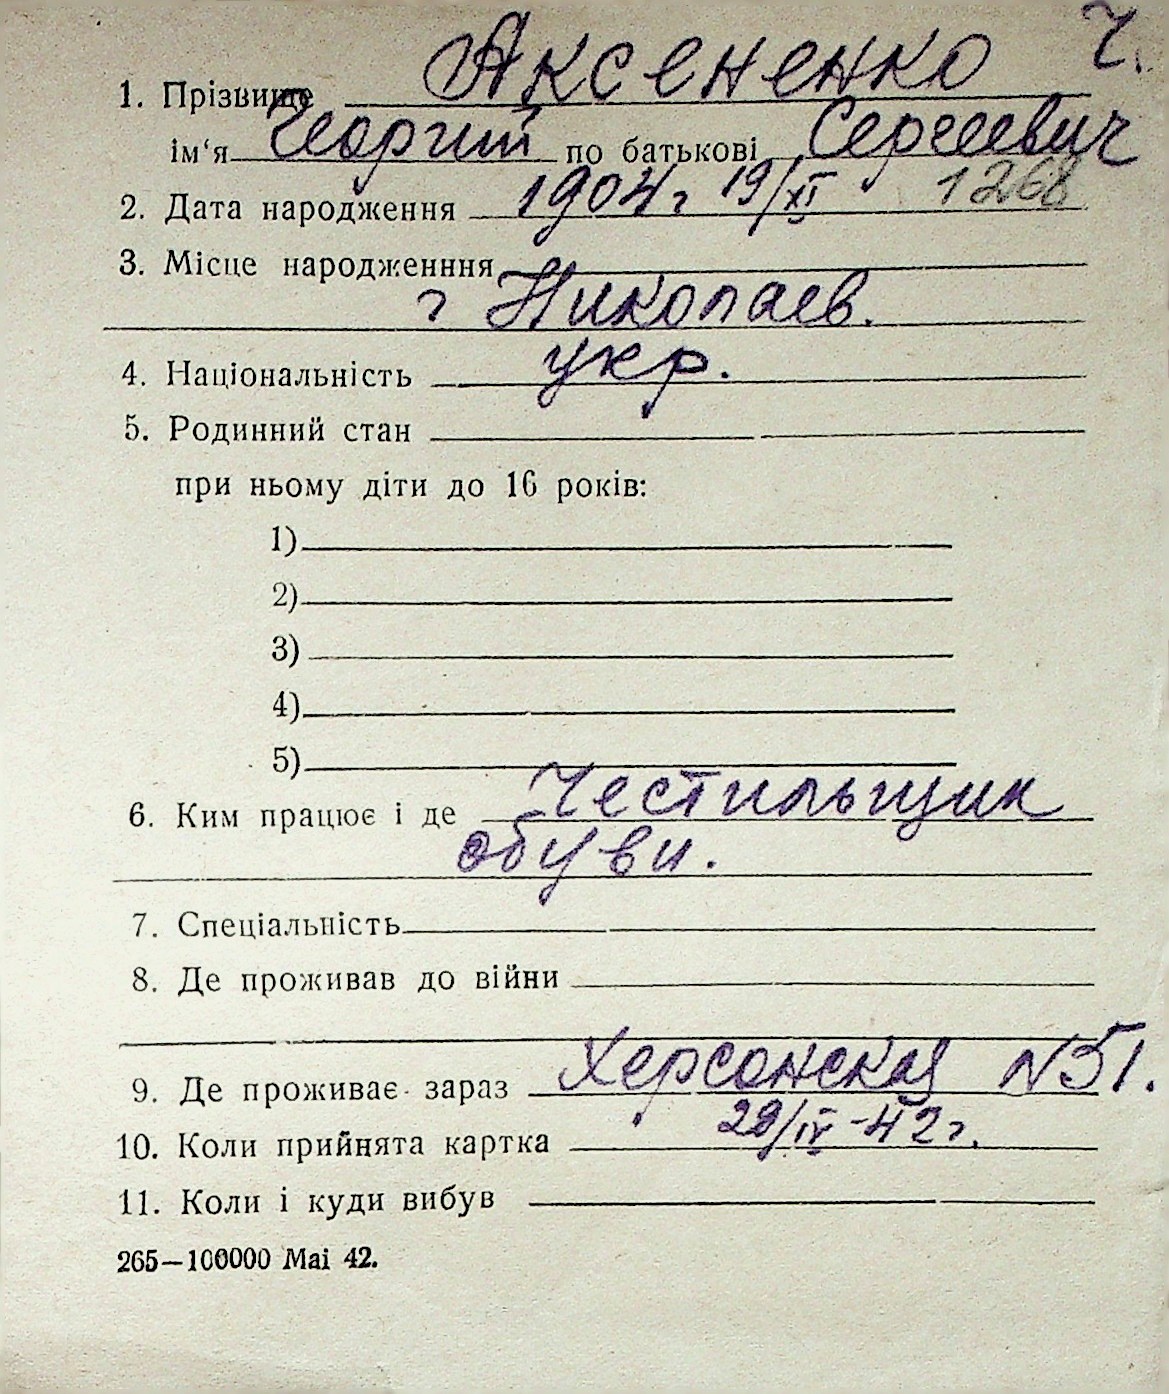 Ч.
1. Прізвище Аксененко
ім‘я Георгий по батькові Сергеевич
2. Дата народження 1904 г 19/XI 1268
3. Місце народженння
г Николаев.
4. Національність укр.
5. Родинний стан
при ньому діти до 16 років:
1)
2)
3)
4)
5)
6. Ким працює і де Честильщик
обуви.
7. Спеціальність
8. Де проживав до війни
9. Де проживає зараз Херсонская N 51.
10. Коли прийнята картка 28/IV-42 г.
11. Коли і куди вибув
265—100000 Mai 42.